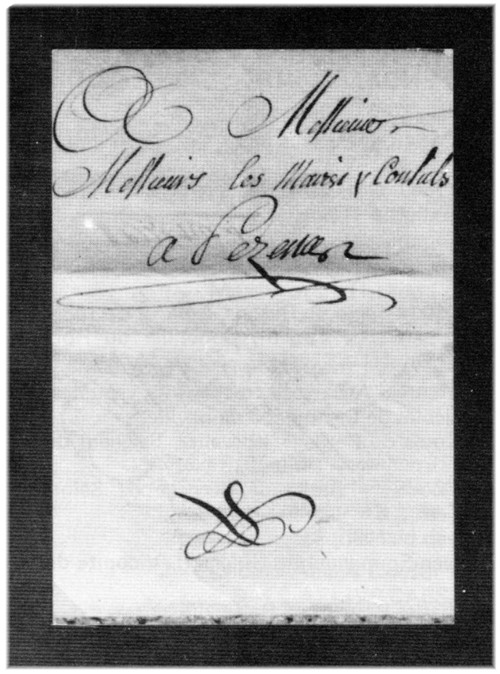 A Messieurs
Messieurs les Maire & Consuls
a Pezenas